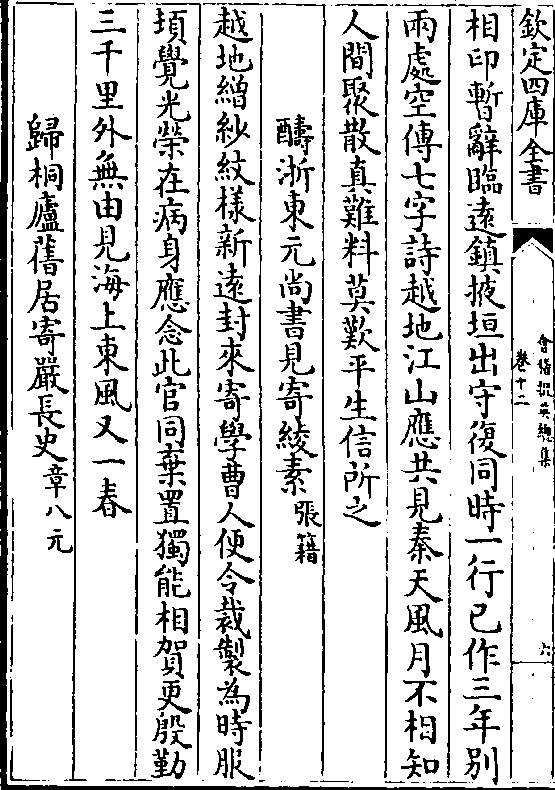 欽定四庫全書
會稽掇英總集
卷十二
六
相印暫辭臨遠鎮掖垣出守復同時一行已作三年别
兩處空傳七字詩越地江山應共見秦天風月不相知
人間聚散真難料莫歎平生信所之
醻浙東元尚書見寄綾素 張籍
越地繒紗紋樣新遠封來寄學曹人便令裁製為時服
頃覺光榮在病身應念此官同棄置獨能相賀更殷勤
三千里外無由見海上東風又一春
歸桐廬舊居寄嚴長史 章八元